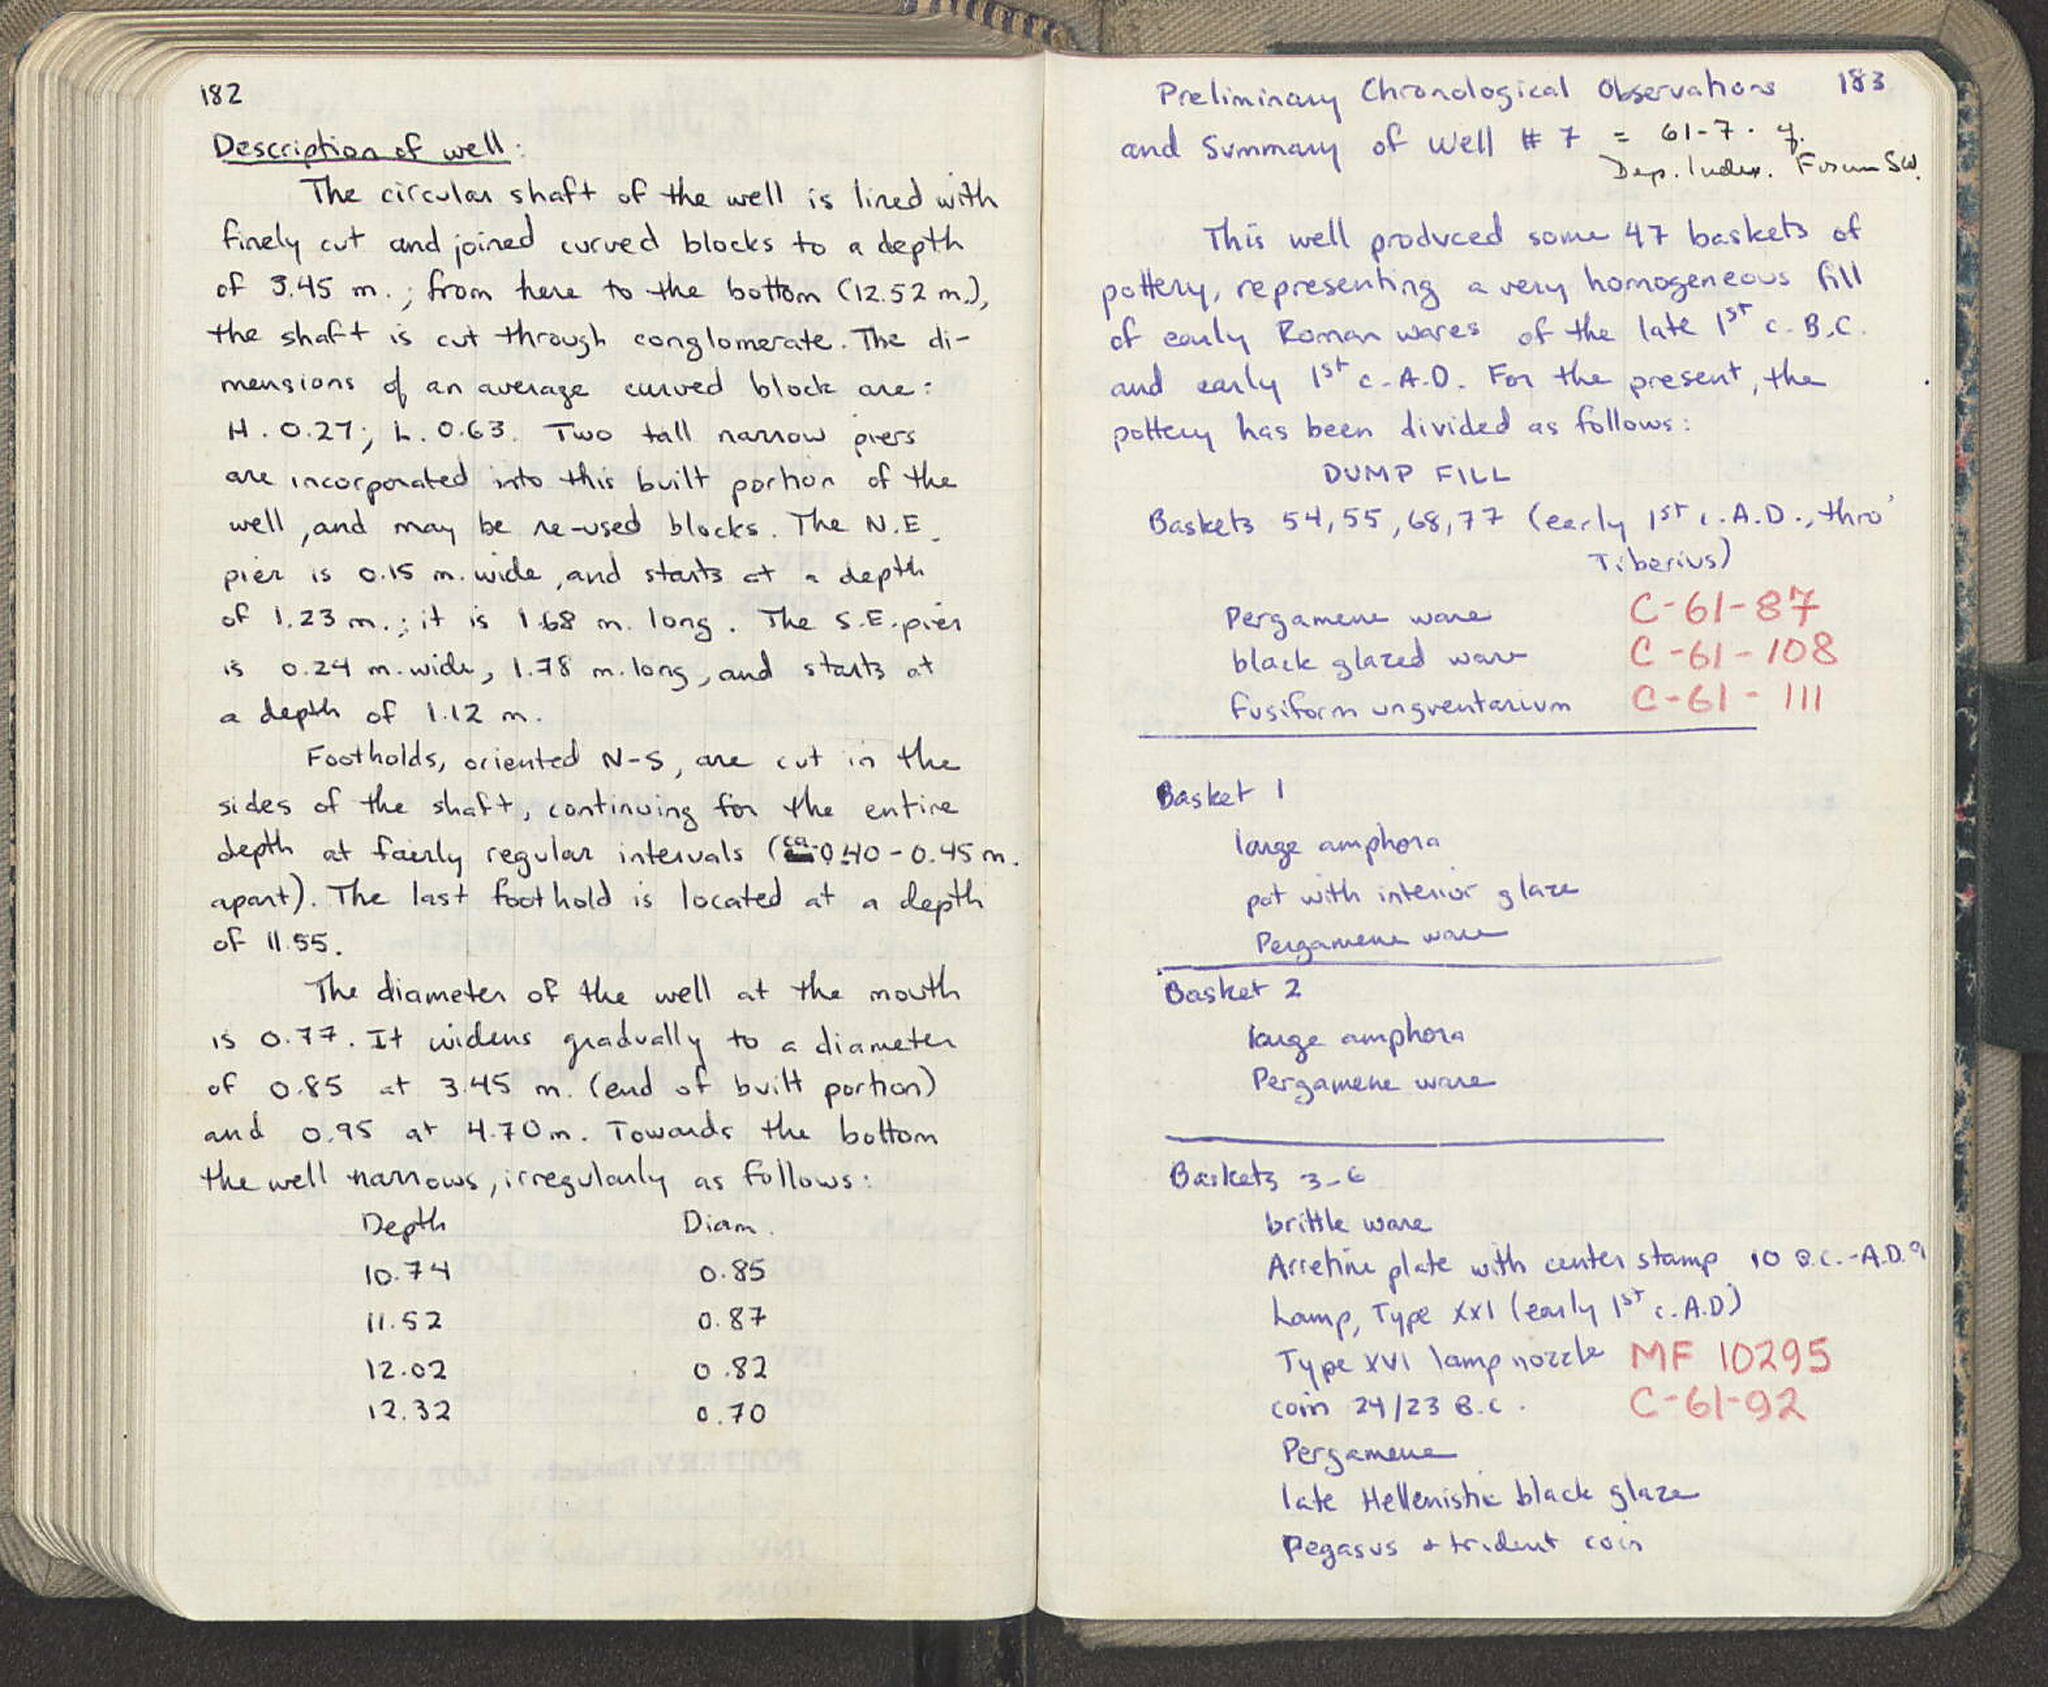 182
Description of well:
The circular shaft of the well is lined with
finely cut and joined curved blocks to a depth
of 3.45 m.; from here to the bottom (12.52 m.),
the shaft is cut through conglomerate. The di-
mensions of an average curved block are:
H. 0.27; L. 0.63. Two tall narrow piers
are incorporated into this built portion of the
well, and may be re-used blocks. The N.E.
pier is 0.15 m. wide, and starts at a depth
of 1.23 m.; it is 1.68 m. long. The S.E. pier
is 0.24 m. wide, 1.78 m. long, and starts at
a depth of 1.12 m.
Footholds, oriented N-S, are cut in the
sides of the shaft, continuing for the entire
depth at fairly regular intervals (ca. 0.40 - 0.45 m.
apart). The last foothold is located at a depth
of 11.55.
The diameter of the well at the mouth
is 0.77. It widens gradually to a diameter
of 0.85 at 3.45 m. (end of built portion)
and 0.95 at 4.70 m. Towards the bottom
the well narrows, irregularly as follows:
Depth Diam.
10.74 0.85
11.52 0.87
12.02 0.82
12.32 0.70
Preliminary Chronological Observations 183
and Summary of Well # 7 = 61-7.
Dep. Index. Forum SW.
This well produced some 47 baskets of
pottery, representing a very homogeneous fill
of early Roman wares of the late 1st c. B.C.
and early 1st c. A.D. For the present, the
pottery has been divided as follows:
DUMP FILL
Baskets 54, 55, 68, 77 (early 1st c. A.D., thro'
Tiberius)
Pergamene ware C-61-87
black glazed ware C-61-108
fusiform unguentarium C-61-111
Basket 1
large amphora
pot with interior glaze
Pergamene ware
Basket 2
large amphora
Pergamene ware
Baskets 3-6
brittle ware
Arretine plate with center stamp 10 B.C.-A.D. 9
Lamp, Type XXI (early 1st c. A.D)
Type XVI lamp nozzle MF 10295
coin 24/23 B.C. C-61-92
Pergamene
late Hellenistic black glaze
Pegasus + trident coin